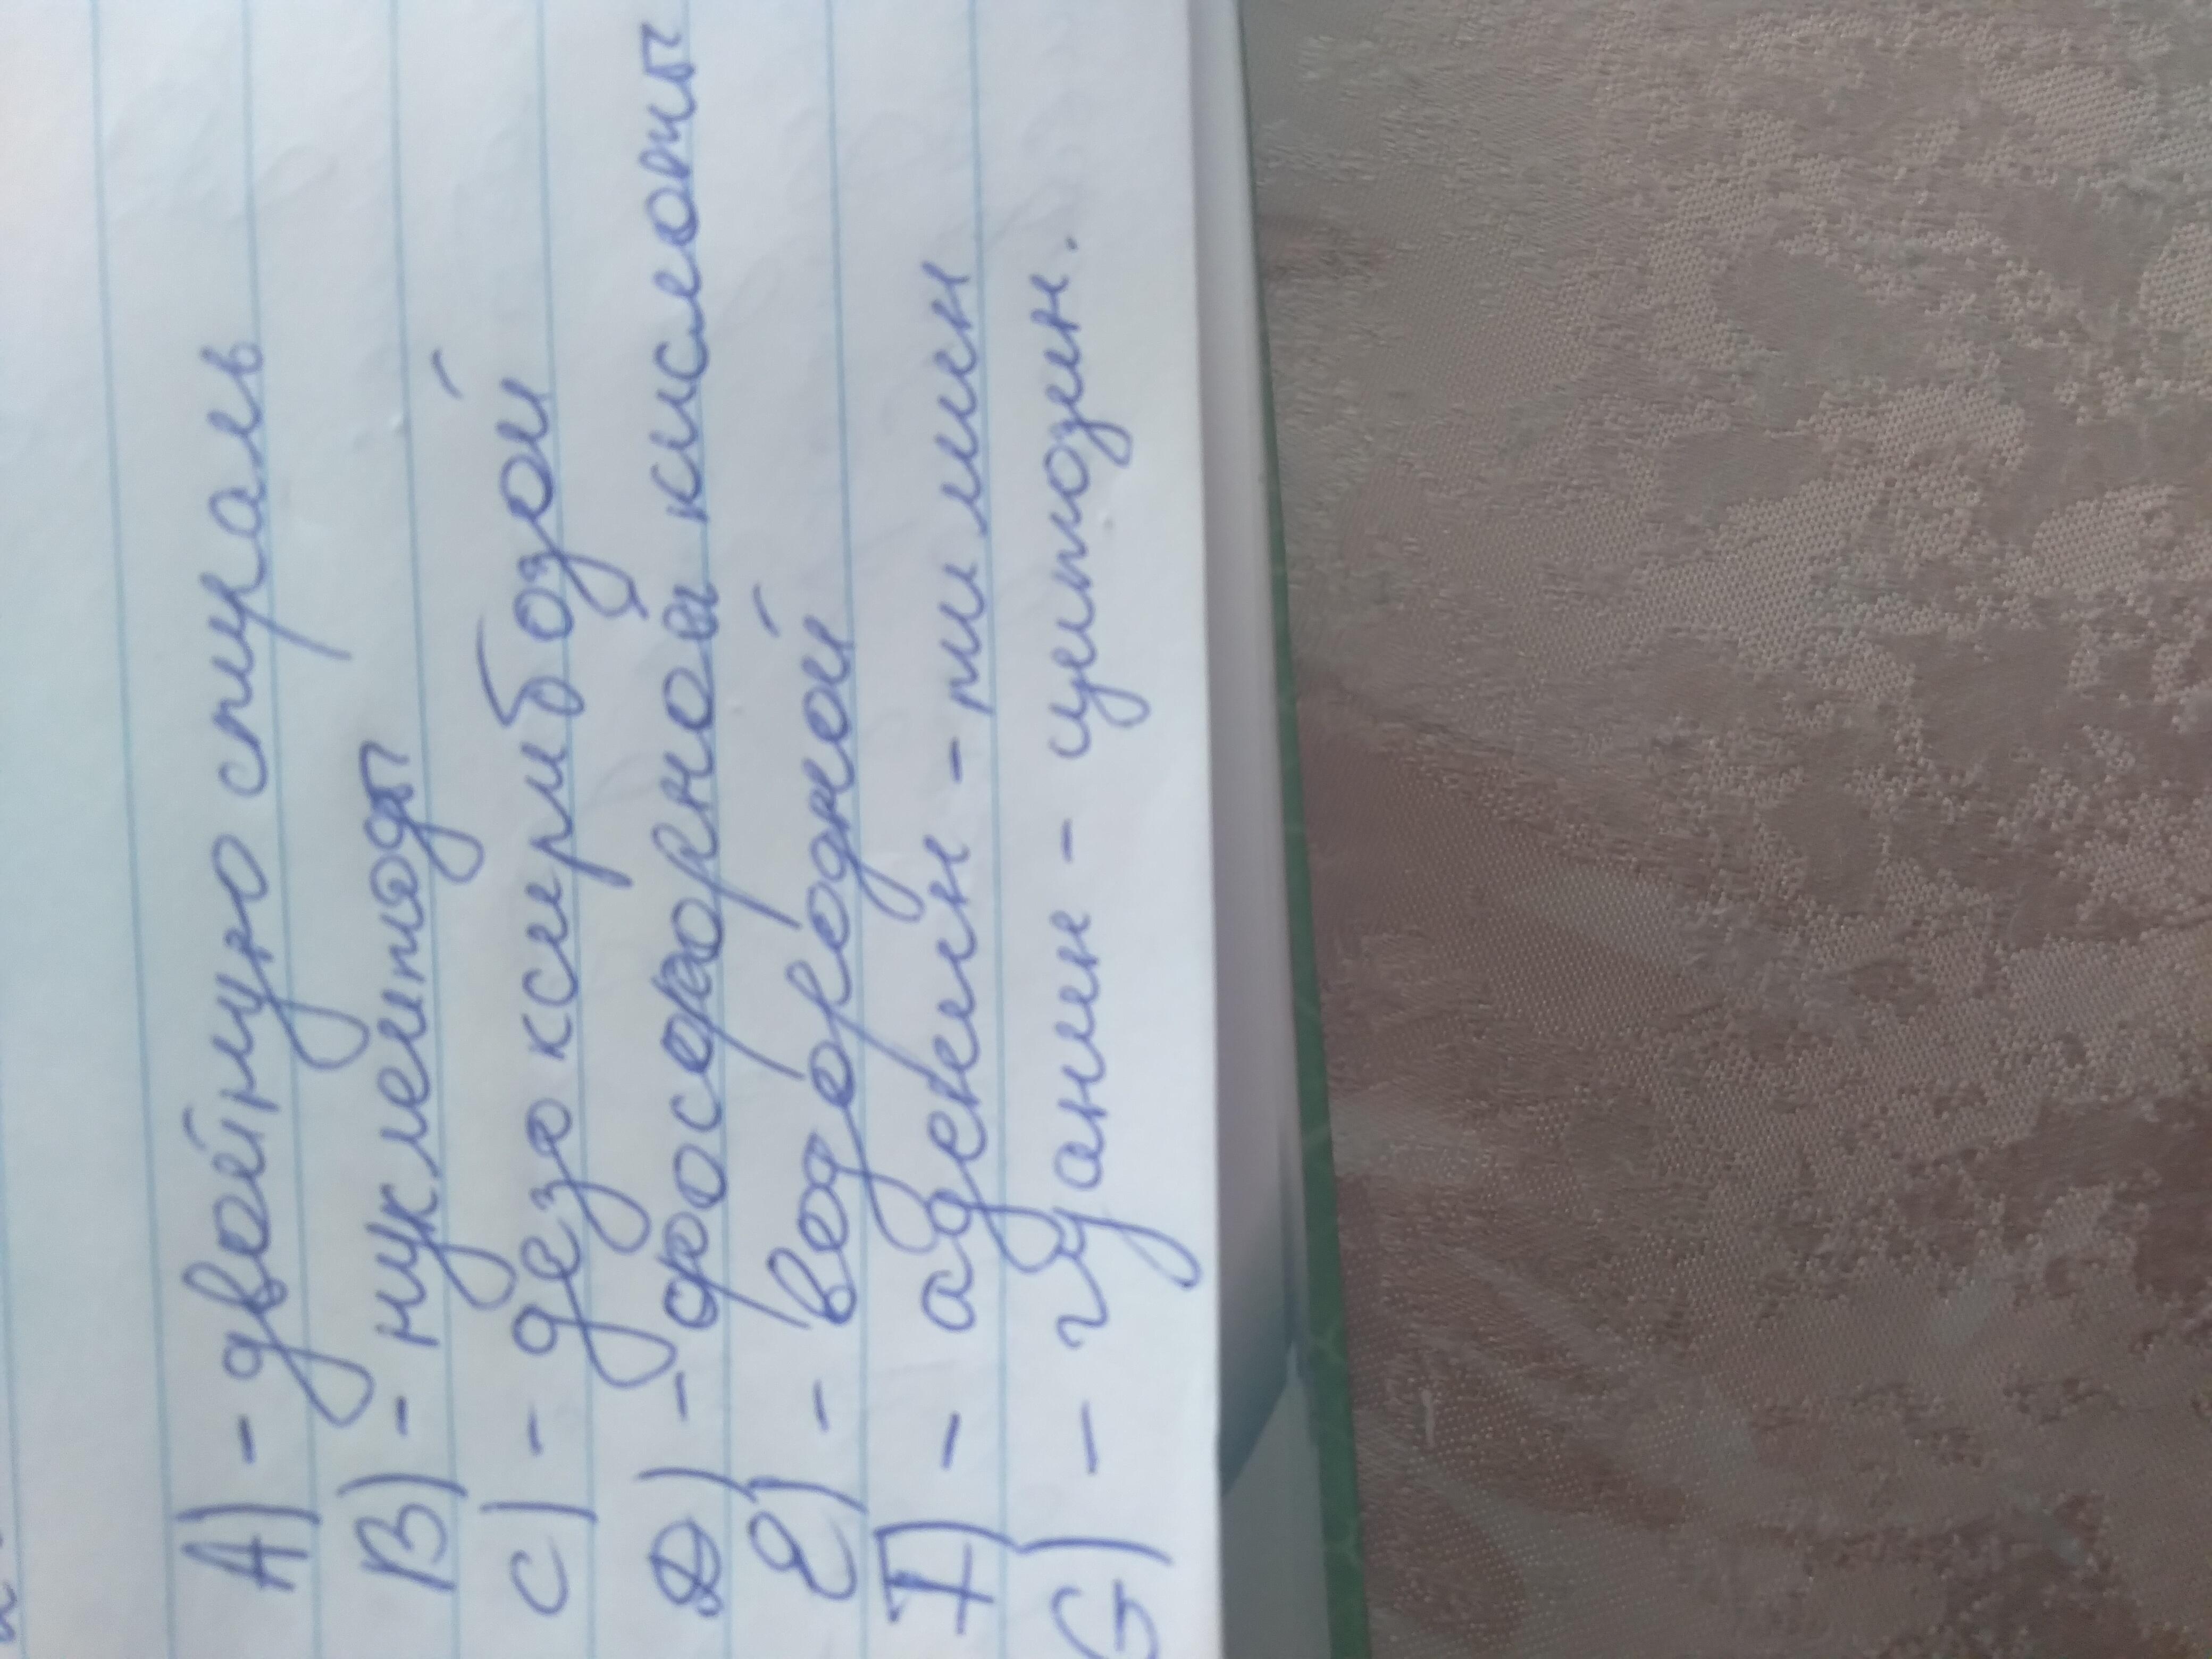 A) - двойную спираль
B) - нуклеитоды
C) - дезоксирибозой
D) - фосфорной кислоты
E) - водородной
F) - аденин - тимин
G) - гуанин - цитозин.